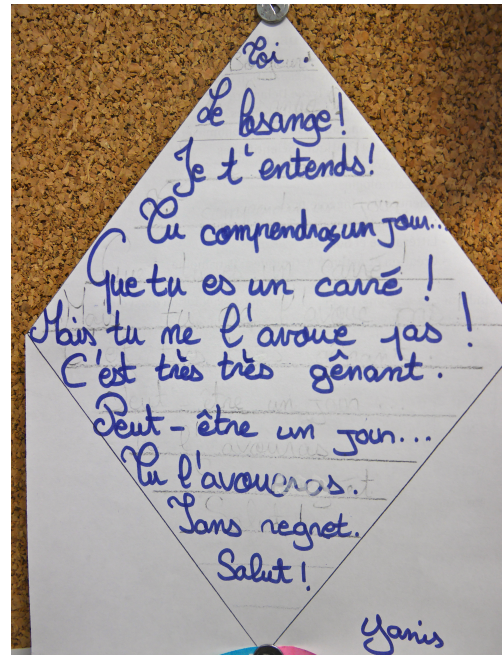 Toi.
Le losange!
Je t'entends!
Tu comprendras un jour...
Que tu es un carré !
Mais tu ne l'avoue pas !
C'est très très gênant.
Peut-être un jour...
Tu l'avoueras.
Sans regret.
Salut !
Yanis